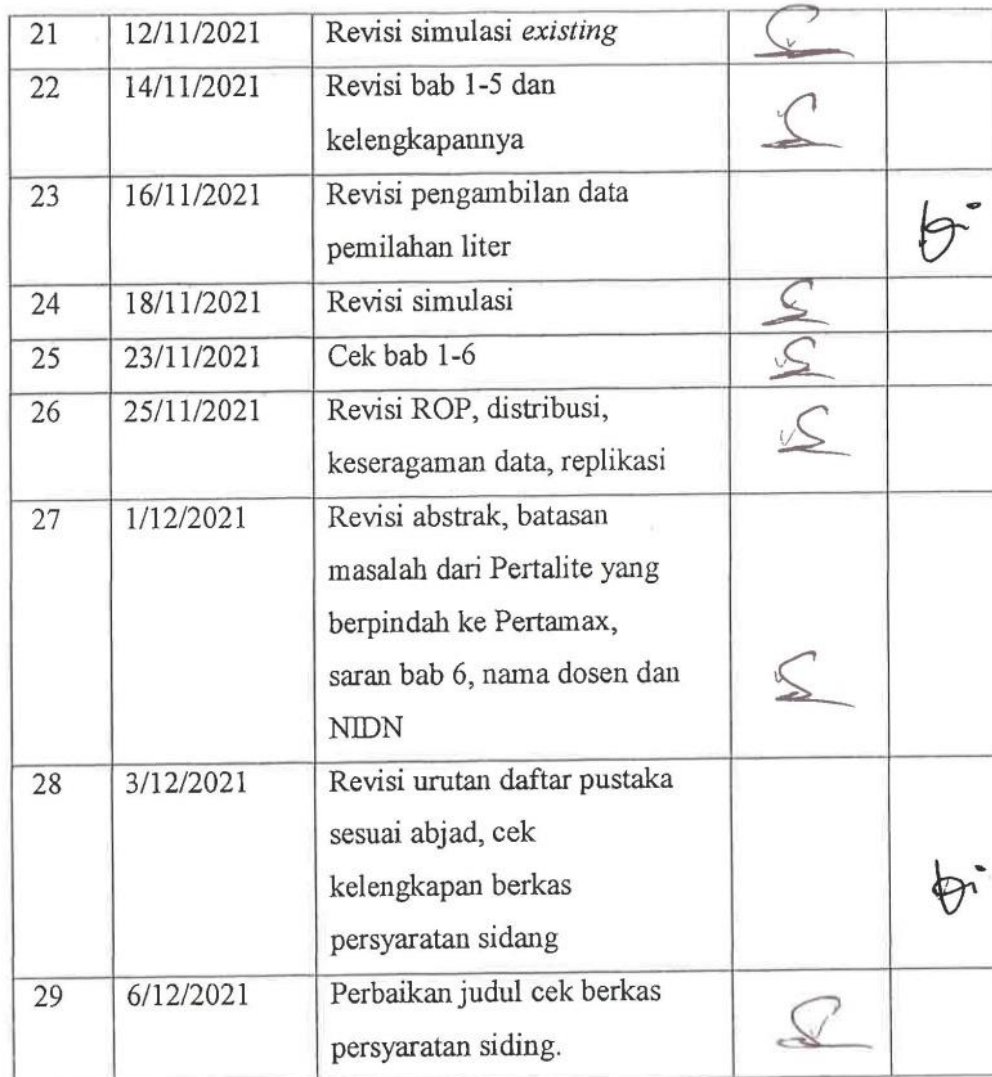 21 12/11/2021 Revisi simulasi existing
22 14/11/2021 Revisi bab 1-5 dan
kelengkapannya
23 16/11/2021 Revisi pengambilan data
pemilahan liter
24 18/11/2021 Revisi simulasi
25 23/11/2021 Cek bab 1-6
26 25/11/2021 Revisi ROP, distribusi,
keseragaman data, replikasi
27 1/12/2021 Revisi abstrak, batasan
masalah dari Pertalite yang
berpindah ke Pertamax,
saran bab 6, nama dosen dan
NIDN
28 3/12/2021 Revisi urutan daftar pustaka
sesuai abjad, cek
kelengkapan berkas
persyaratan sidang
29 6/12/2021 Perbaikan judul cek berkas
persyaratan siding.